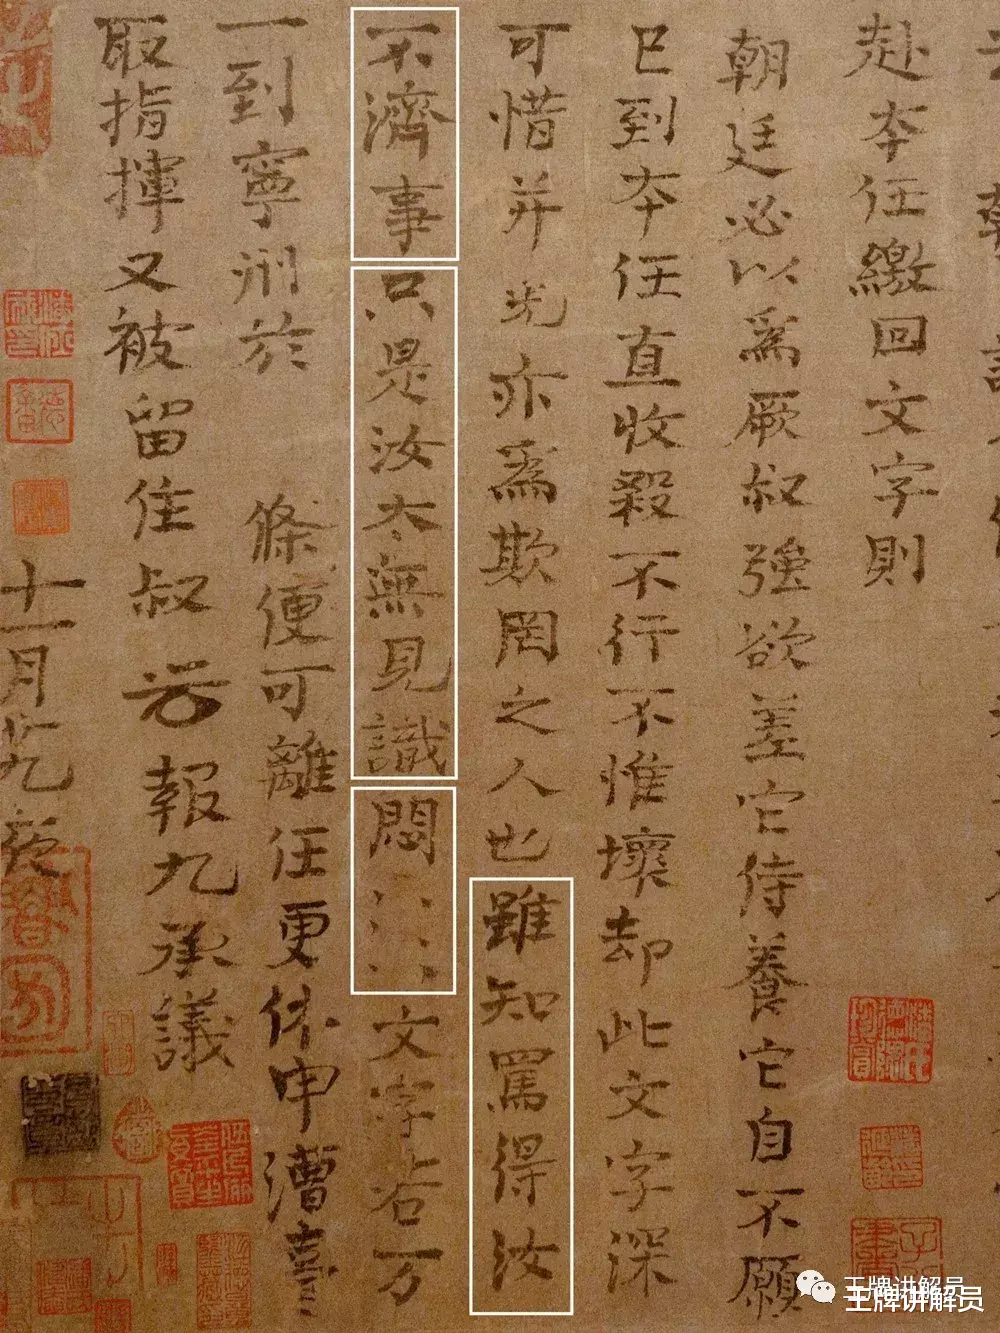 赴夲任繳回文字則
朝廷必以為厥叔強欲差它侍養它自不願
已到夲任直收殺不行不惟壞却此文字深
可惜并光亦為欺罔之人也雖知罵得汝
不濟事只是汝太無見識悶文字若万
一到寧州於條便可離任更休申漕臺
取指揮又被留住叔報九承議
十一月廿九夜
王牌讲解员
王牌讲解员